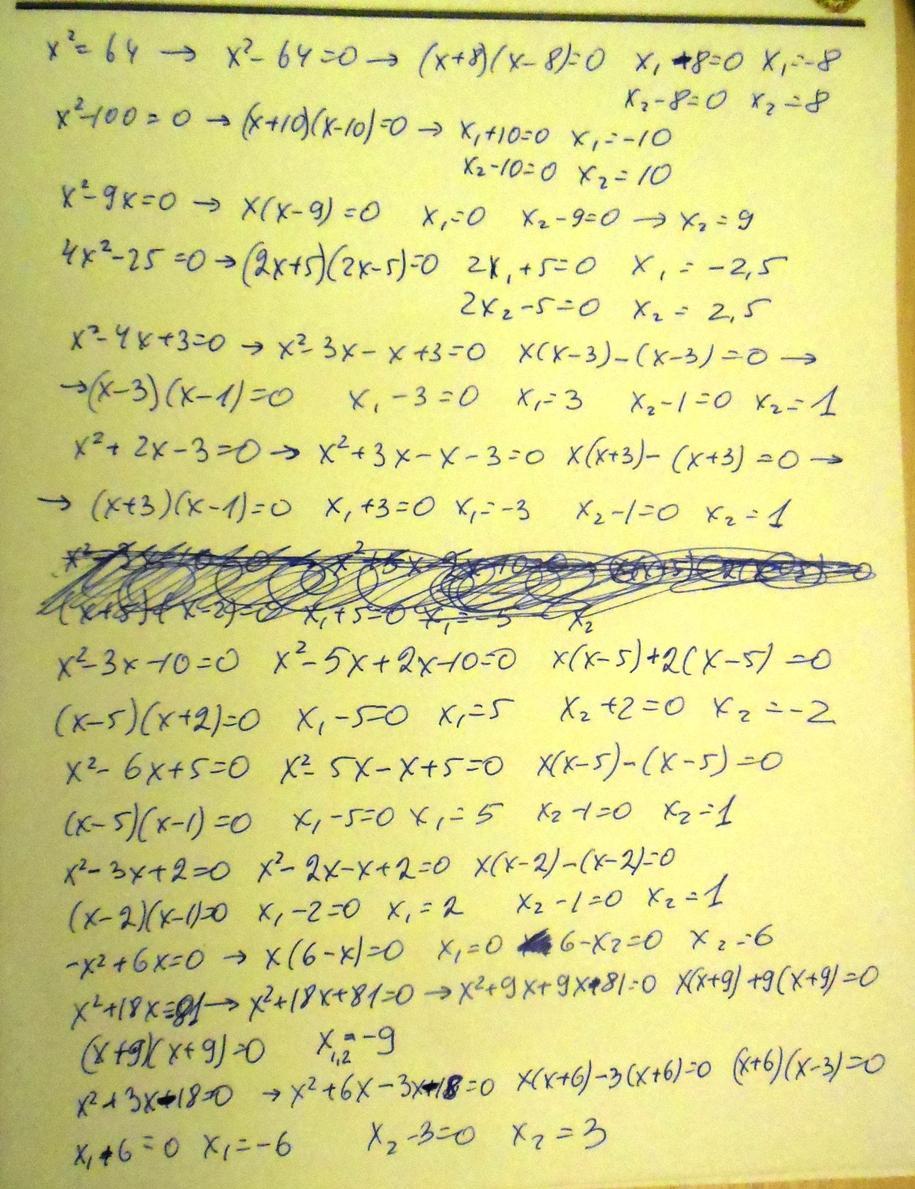 x²=64 → x²-64=0 → (x+8)(x-8)=0 x₁+8=0 x₁=-8
x₂-8=0 x₂=8
x²-100=0 → (x+10)(x-10)=0 → x₁+10=0 x₁=-10
x₂-10=0 x₂=10
x²-9x=0 → x(x-9)=0 x₁=0 x₂-9=0 → x₂=9
4x²-25=0 → (2x+5)(2x-5)=0 2x₁+5=0 x₁=-2,5
2x₂-5=0 x₂=2,5
x²-4x+3=0 → x²-3x-x+3=0 x(x-3)-(x-3)=0 →
→ (x-3)(x-1)=0 x₁-3=0 x₁=3 x₂-1=0 x₂=1
x²+2x-3=0 → x²+3x-x-3=0 x(x+3)-(x+3)=0 →
→ (x+3)(x-1)=0 x₁+3=0 x₁=-3 x₂-1=0 x₂=1
x₁+5=0 x₂
x²-3x-10=0 x²-5x+2x-10=0 x(x-5)+2(x-5)=0
(x-5)(x+2)=0 x₁-5=0 x₁=5 x₂+2=0 x₂=-2
x²-6x+5=0 x²-5x-x+5=0 x(x-5)-(x-5)=0
(x-5)(x-1)=0 x₁-5=0 x₁=5 x₂-1=0 x₂=1
x²-3x+2=0 x²-2x-x+2=0 x(x-2)-(x-2)=0
(x-2)(x-1)=0 x₁-2=0 x₁=2 x₂-1=0 x₂=1
-x²+6x=0 → x(6-x)=0 x₁=0 6-x₂=0 x₂=6
x²+18x=81 → x²+18x+81=0 → x²+9x+9x+81=0 x(x+9)+9(x+9)=0
(x+9)(x+9)=0 x₁,₂=-9
x²+3x-18=0 → x²+6x-3x-18=0 x(x+6)-3(x+6)=0 (x+6)(x-3)=0
x₁+6=0 x₁=-6 x₂-3=0 x₂=3